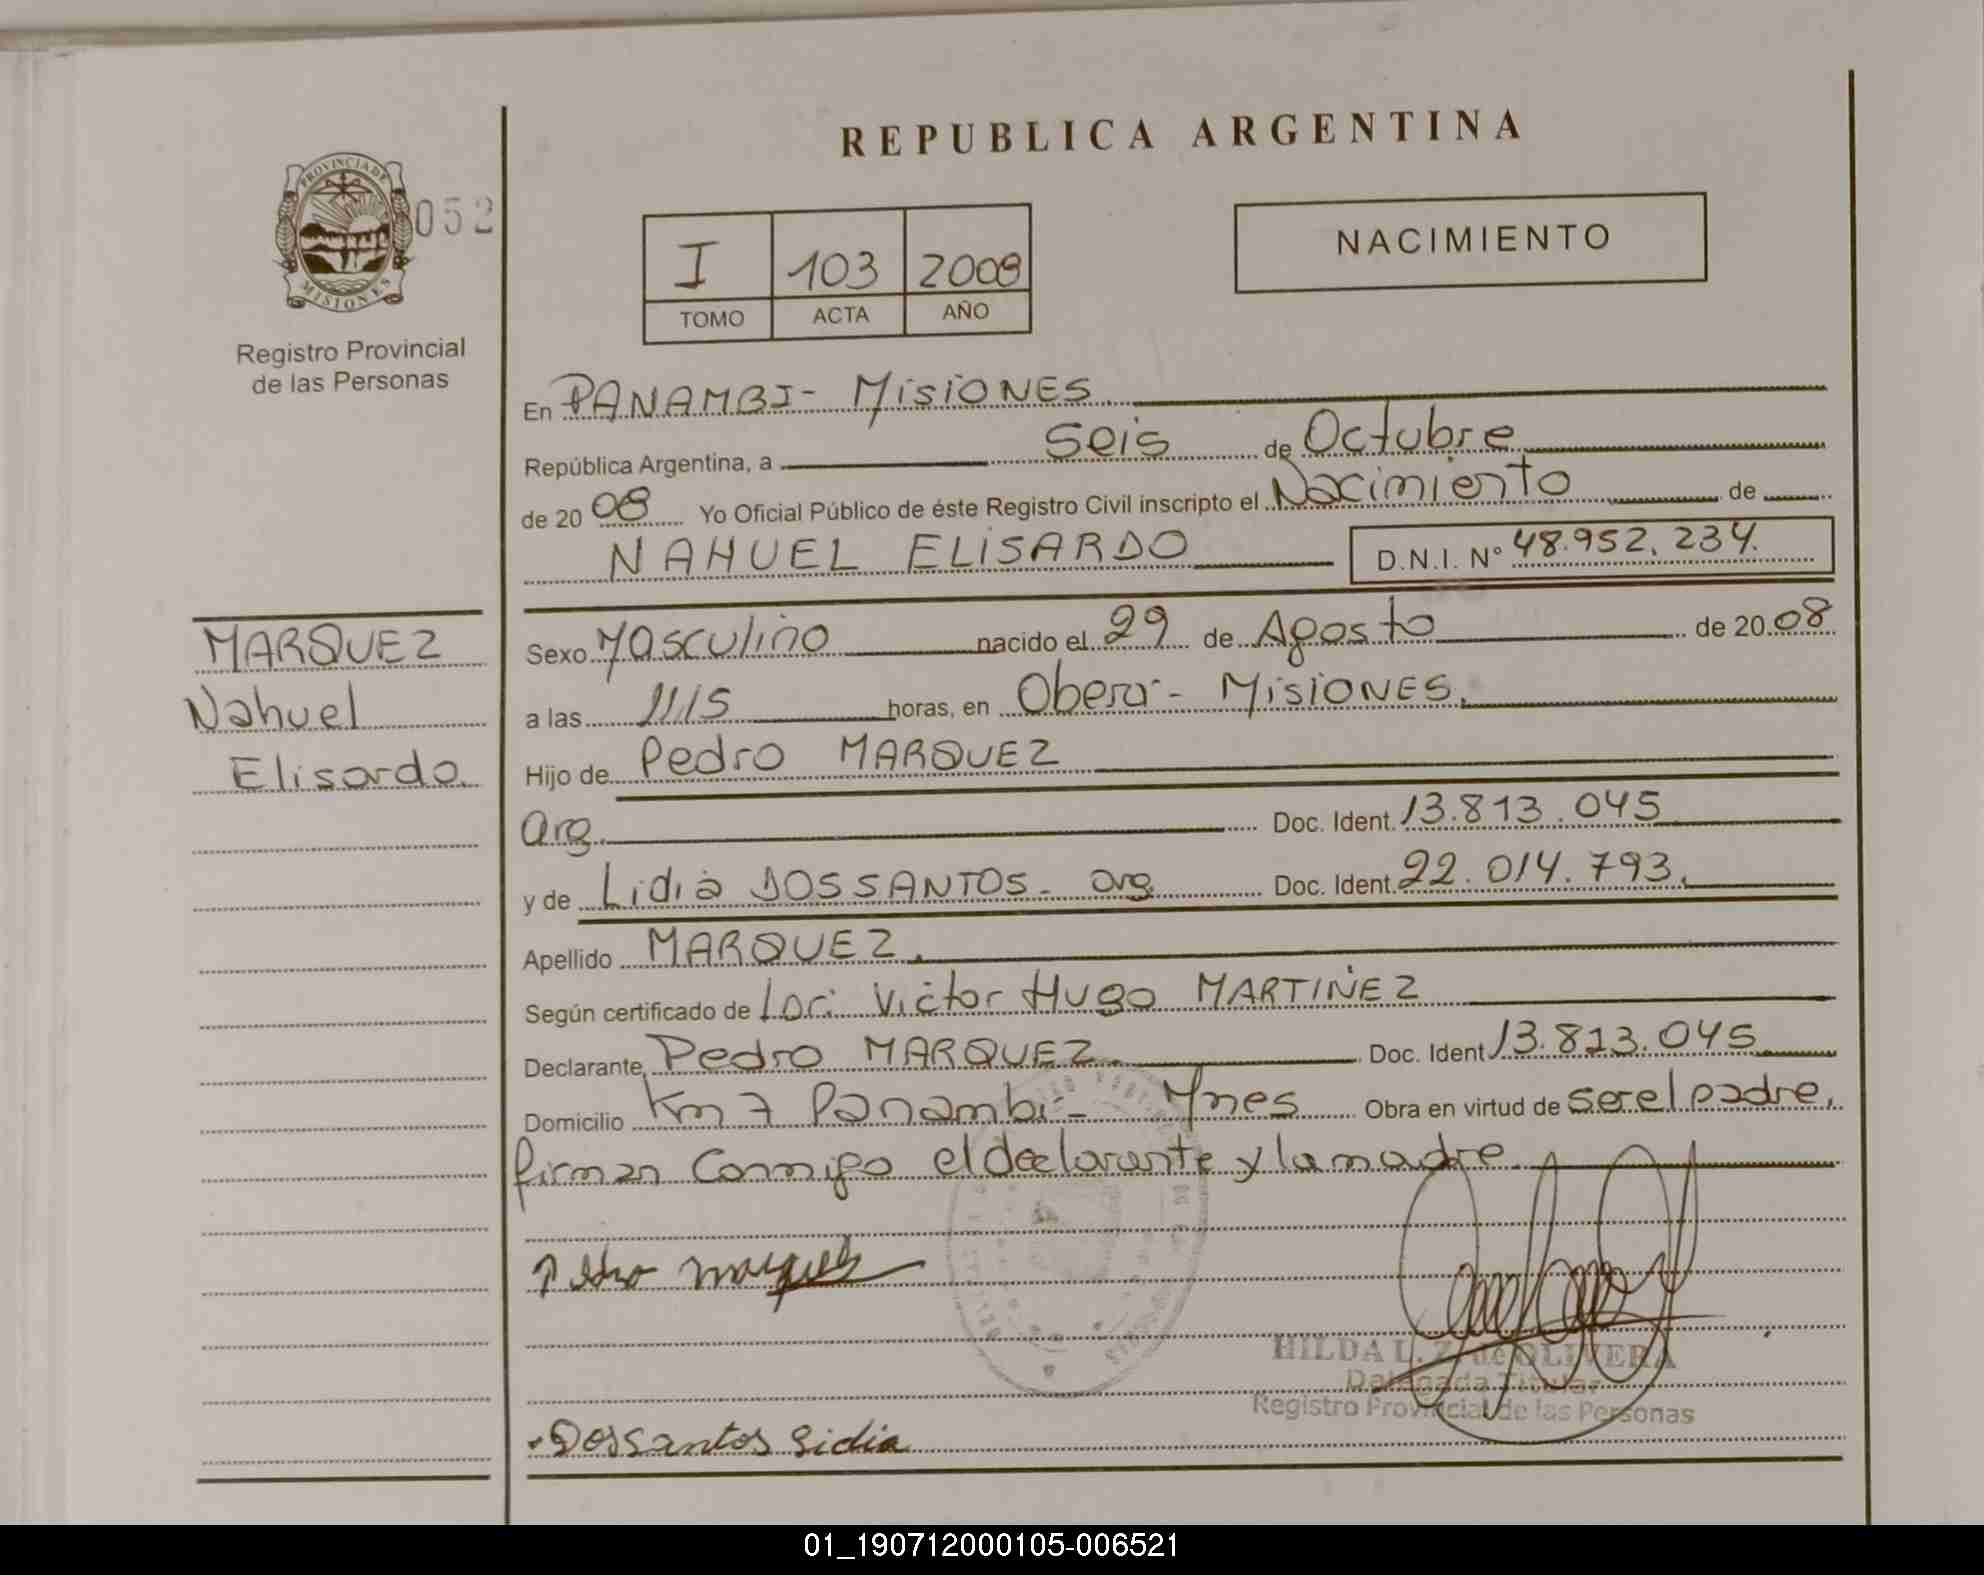 REPUBLICA ARGENTINA
PROVINCIA DE
MISIONES
052
Registro Provincial
de las Personas
I 103 2008
TOMO ACTA AÑO
NACIMIENTO
En PANAMBI - MISIONES.
República Argentina, a seis de Octubre
de 2008 Yo Oficial Público de éste Registro Civil inscripto el Nacimiento de
NAHUEL ELISARDO D.N.I. Nº 48.952.234.
MARQUEZ
Nahuel
Elisardo.
Sexo Masculino nacido el 29 de Agosto de 2008
a las 11,15 horas, en Oberá - MISIONES.
Hijo de Pedro MARQUEZ
arg. Doc. Ident. 13.813.045
y de Lidia DOSSANTOS - arg Doc. Ident. 22.014.793.
Apellido MARQUEZ.
Según certificado de Victor Hugo MARTINEZ
Declarante, Pedro MARQUEZ. Doc. Ident 13.813.045
Domicilio Km 7 Panambi - Mnes Obra en virtud de ser el padre,
firman conmigo el declarante y la madre
Pedro Marquez
HILDA L. Z. de OLIVERA
Delegada Titular
Registro Provincial de las Personas
Dossantos Lidia
01_190712000105-006521